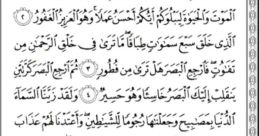 الْمَوْتَ وَالْحَيَوٰةَ لِيَبْلُوَكُمْ أَيُّكُمْ أَحْسَنُ عَمَلًا وَهُوَ الْعَزِيزُ الْغَفُورُ ٢
الَّذِي خَلَقَ سَبْعَ سَمَٰوَاتٍ طِبَاقًا مَّا تَرَىٰ فِي خَلْقِ الرَّحْمَٰنِ مِن
تَفَٰوُتٍ فَارْجِعِ الْبَصَرَ هَلْ تَرَىٰ مِن فُطُورٍ ٣ ثُمَّ ارْجِعِ الْبَصَرَ كَرَّتَيْنِ
يَنقَلِبْ إِلَيْكَ الْبَصَرُ خَاسِئًا وَهُوَ حَسِيرٌ ٤ وَلَقَدْ زَيَّنَّا السَّمَاءَ
الدُّنْيَا بِمَصَٰبِيحَ وَجَعَلْنَٰهَا رُجُومًا لِّلشَّيَٰطِينِ وَأَعْتَدْنَا لَهُمْ عَذَابَ